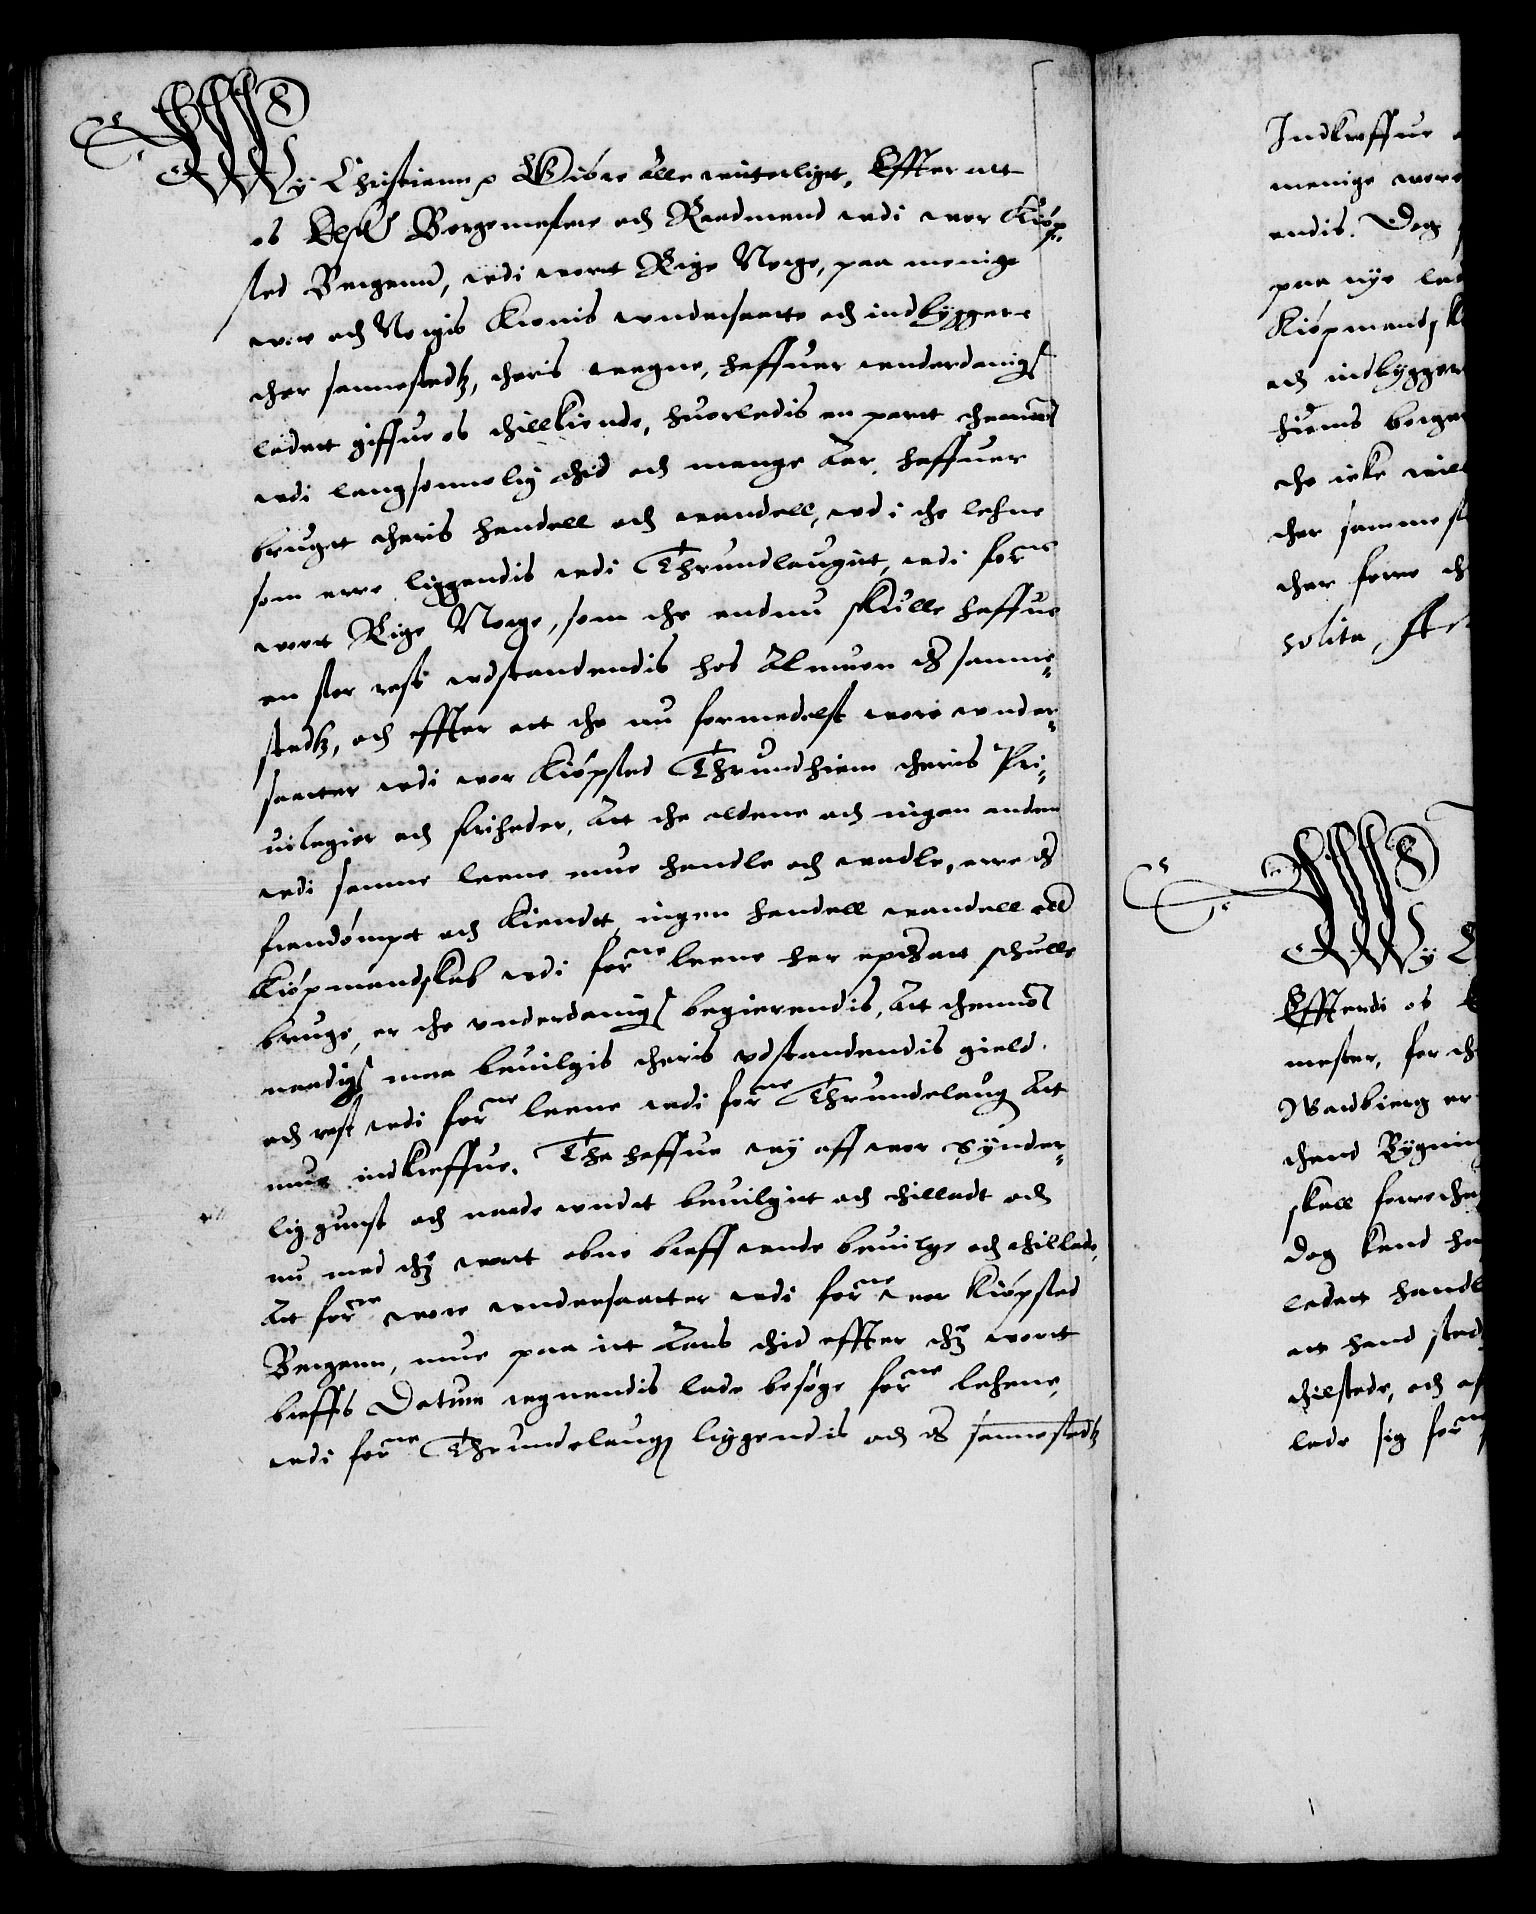 Wy Christiann Giöre alle witterligt, Effter att
os Borgemestere och Raadmend vdi vor Kiöp-
sted Bergenn, vdi vort Rige Norge, paa menige
vore och Norgis Kronis vndersaatte och indbyggere
ther sammestedz, theris wegne, haffuer vnderdanigst
ladet giffue os thillkiende, huorledis en partt thennom
vdi langsommelig thid och mange Aar, haffuer
bruget theris handell och vandell, vdi the lehne
som erre liggendis vdi Thrundlauget, vdi forne
wort Rige Norge, som the endnu skulle haffue
en stor rest vdstandendis hos Almuen der samme-
stedz, och effter att the nu formedelst wore vnder-
saatter vdi vor Kiöpsted Thrundhiem theris Pri-
uilegier och friheder, At the aldene och ingen anden
vdi samme leene mue handle och vandle, erre der
frandömpt och kiendt, ingen handell vandell eller
Kiöpmandskab vdi forne leene her epther att schulle
bruge, er the vnderdanigst begierendis, At thennom
naadigst maa beuilgis theris vdstandendis gield
och rest vdi forne leene vdi forne Thrundelaug At
mue indkreffue. Tha haffue wy aff vor synder-
lig gunst och naade vndt beuilget och thilladt och
nu med thette wort obne breff vnde beuilge och thillade,
At forne wore vndersaatter vdi forne vor Kiöpsted
Bergenn, mue paa itt Aars thid effter thette wortt
breffs Datum regnendis lade besöge forne lehene,
vdi forne Thrundelaug liggendis och der sammestedz
Indkreffue
menige wore
endis. Dog
paa nye lad
Kiöpmandsk
och indbygger
hiems borger
the icke will
ther sammest
ther forre
solita,
Wy
Effterdi os
mester, for
Wardbierg er
thend Bygnin
skall forre
dog kand
ladett handl
att hand sted
thilstede, och
lade sig forne